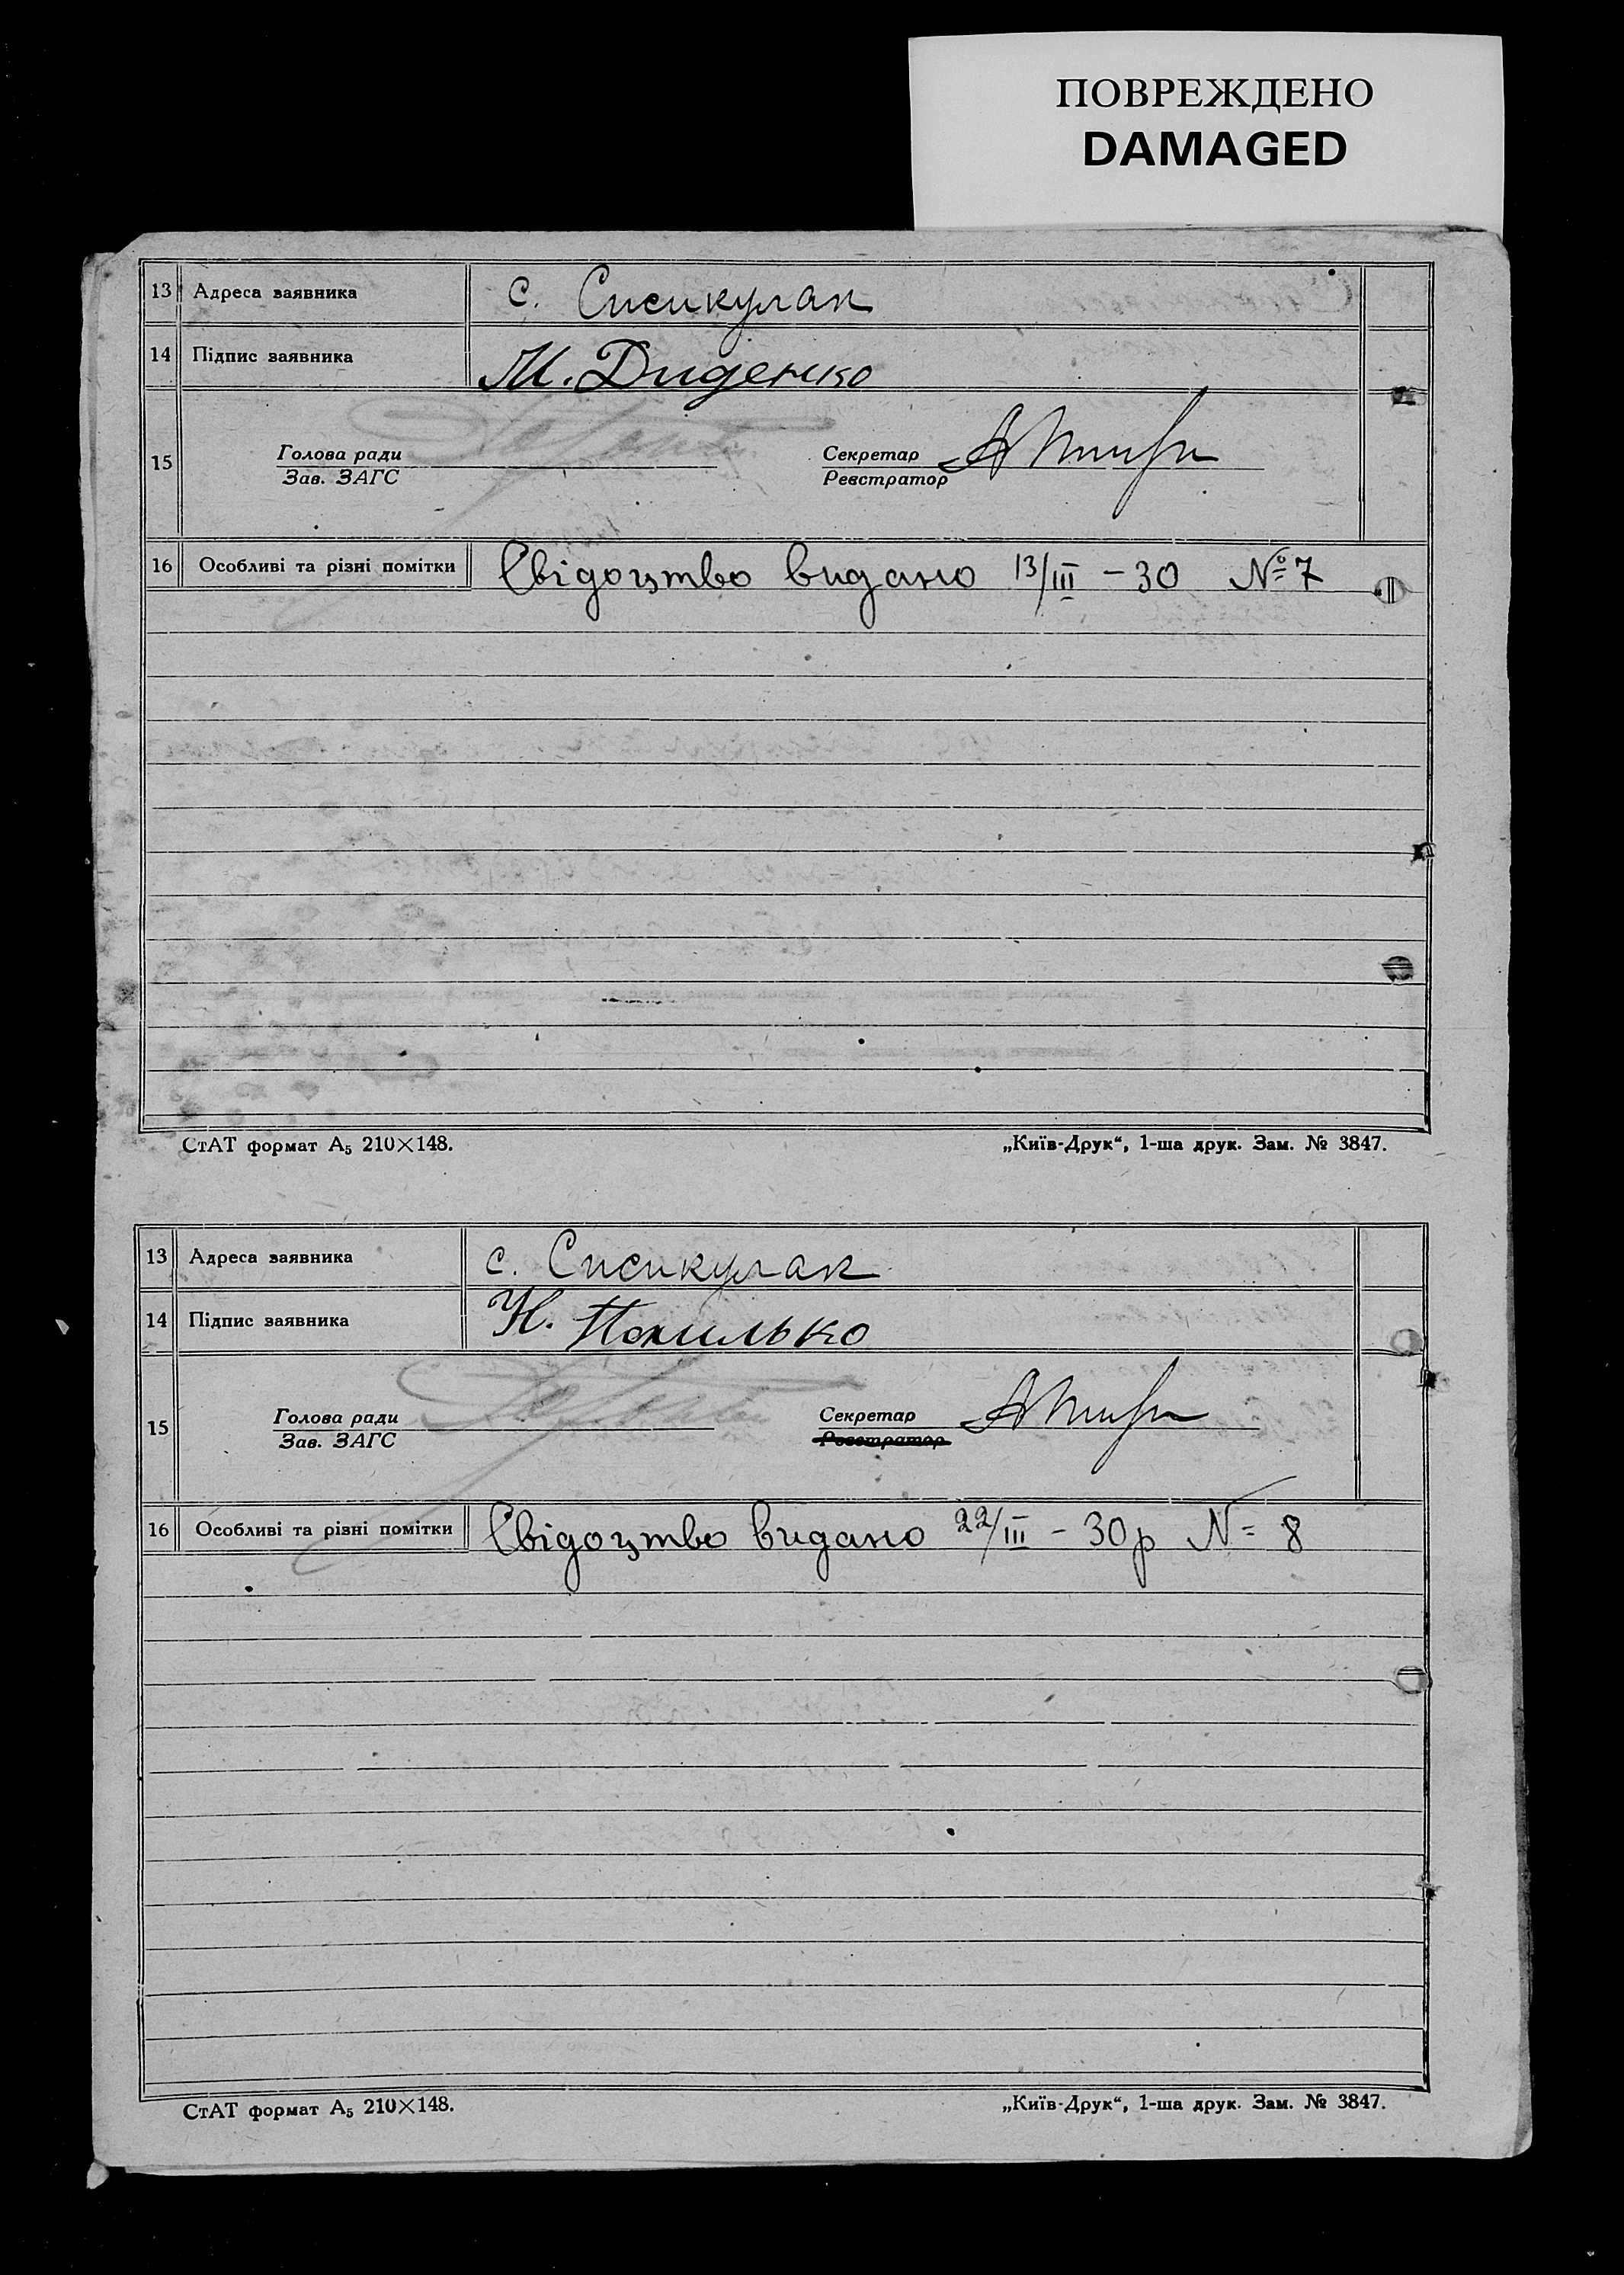 ПОВРЕЖДЕНО
DAMAGED
13 Адреса заявника с. Сисикулак
14 Підпис заявника М. Диденко
15 Голова ради Секретар
Зав. ЗАГС Реєстратор
16 Особливі та різні помітки Свідоцтво видано 13/III – 30 № 7
СтАТ формат А₅ 210×148. „Київ-Друк“, 1-ша друк. Зам. № 3847.
13 Адреса заявника с. Сисикулак
14 Підпис заявника Н.
15 Голова ради Секретар
Зав. ЗАГС Реєстратор
16 Особливі та різні помітки Свідоцтво видано 22/III – 30р № 8
СтАТ формат А₅ 210×148. „Київ-Друк“, 1-ша друк. Зам. № 3847.